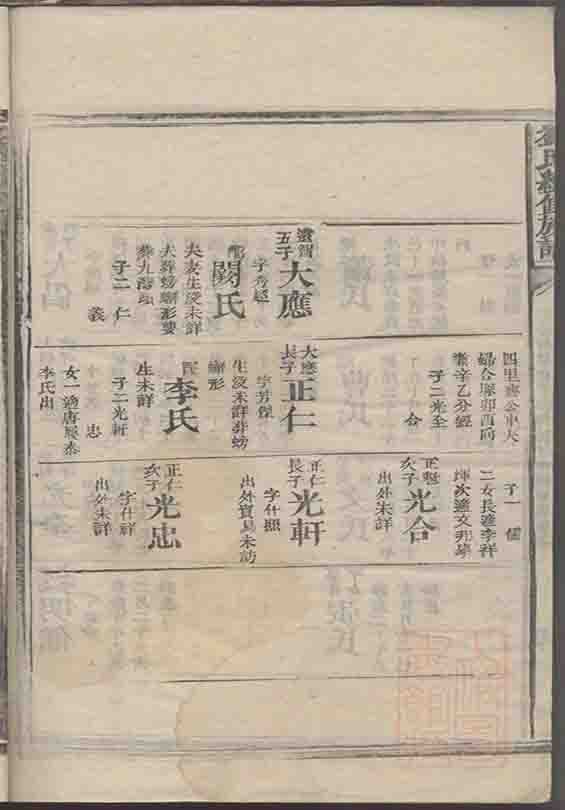 氏續修族譜
四里塘公車大
婦合塚卯酉向
兼辛乙分經
子二光全
合
大應
長子
正仁
字芳傑
生沒未詳葬螃
蠏形
配
李氏
生未詳
子二光軒
忠
女一適唐
李氏出
五子
大應
字秀超
配
闕氏
夫妻生沒未詳
夫葬螃蠏形妻
葬九灣坳
子二仁
義
子一儒
二女長適李祥
煇次適文邦學
次子
光合
出外未詳
正仁
長子
光軒
字什照
出外貿易未訪
正仁
次子
光忠
字什祥
出外未詳